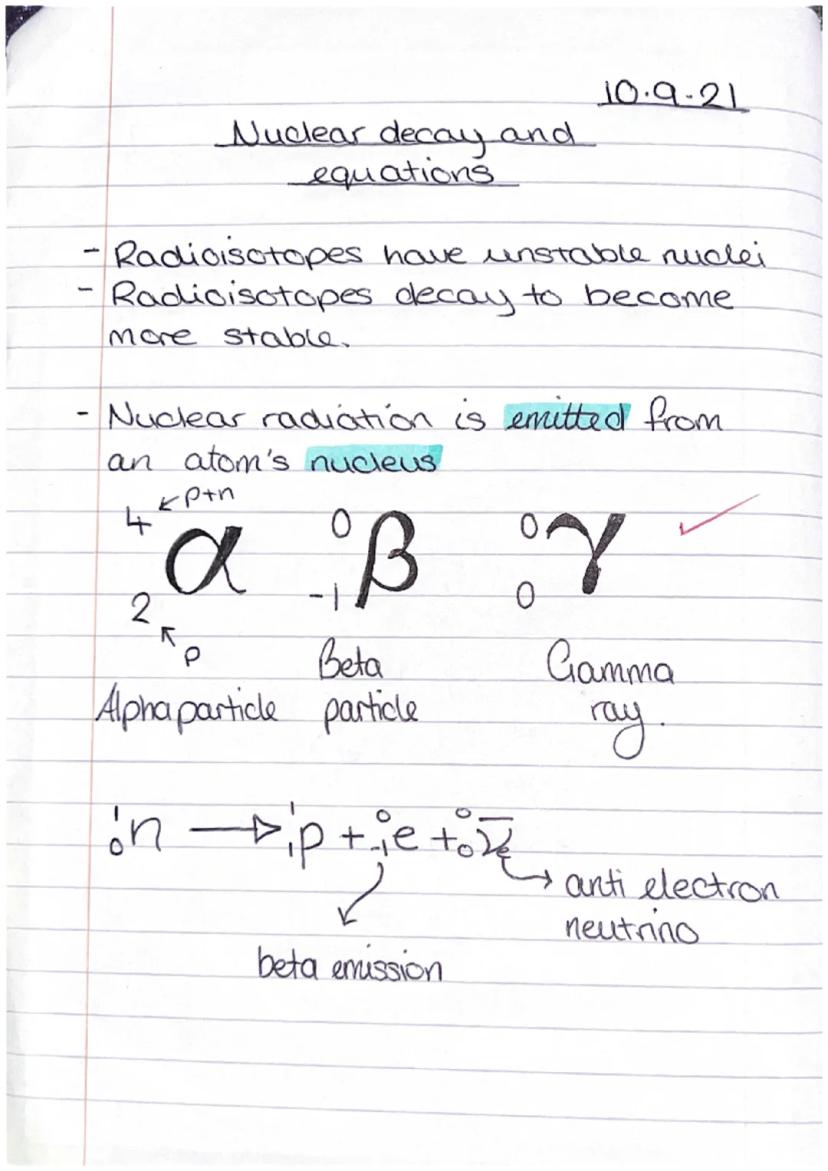 10.9.21
Nuclear decay and
equations
- Radioisotopes have unstable nuclei
- Radioisotopes decay to become
more stable.
- Nuclear radiation is emitted from
an atom's nucleus
4 ↙ p+n
α 0 β 0 γ
2 -1 0
↖ p
Beta Gamma
Alpha particle particle ray.
¹₀n → ¹₁p + ⁰₋₁e + ⁰₀ν̅ₑ
→ anti electron
neutrino
beta emission